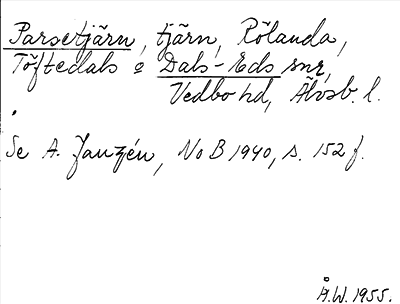 Parsetjärn, tjärn, Rölanda,
Töftedals o Dals-Eds snr,
Vedbo hd, Älvsb. l.
Se A. Janzén, NoB 1940, s. 152 f.
Å.W. 1955.